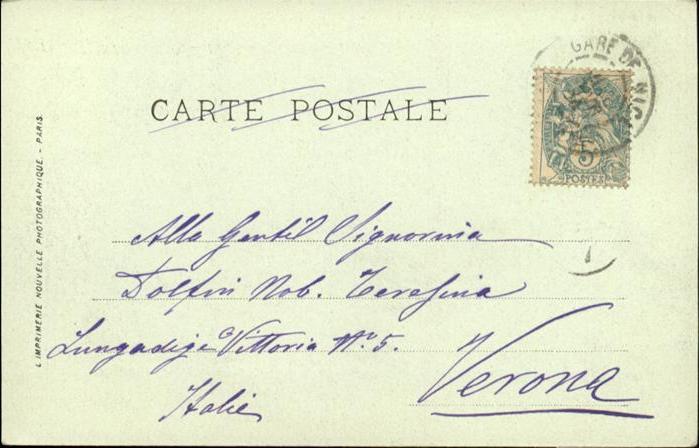 GARE DE NIC
CARTE POSTALE
5
POSTES
Alla Gentil Signorina
Dolfin Nob. Teresina
Lungadige Vittoria Nº 5.
Verona
Italie
L'IMPRIMERIE NOUVELLE PHOTOGRAPHIQUE - PARIS.